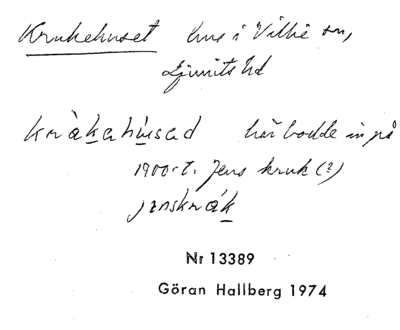 Krukehuset hus i Villie sn,
Ljunits hd
kràkahúsad här bodde in på
1900-t. Jens kruk (?)
jenskrák
Nr 13389
Göran Hallberg 1974